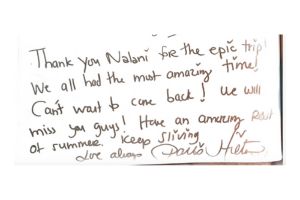 Thank you Nalani for the epic trip!
We all had the most amazing time!
Can't wait to come back! We will
miss you guys! Have an amazing Rest
of summer. Keep Sliving
Love always Paris Hilton